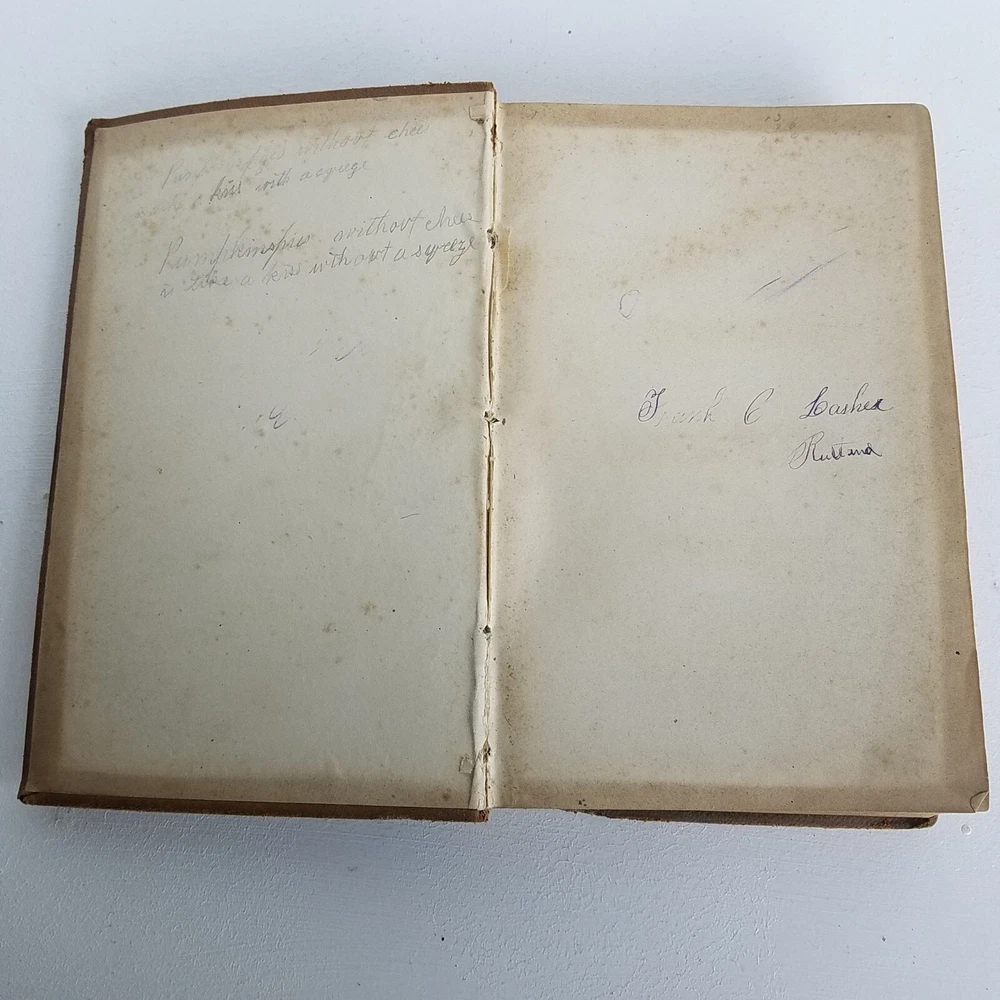 without chees
a kiss with a sqeege
Pumpkinspies without chees
is like a kiss without a sqeeze
Frank C Lasher
Rutland